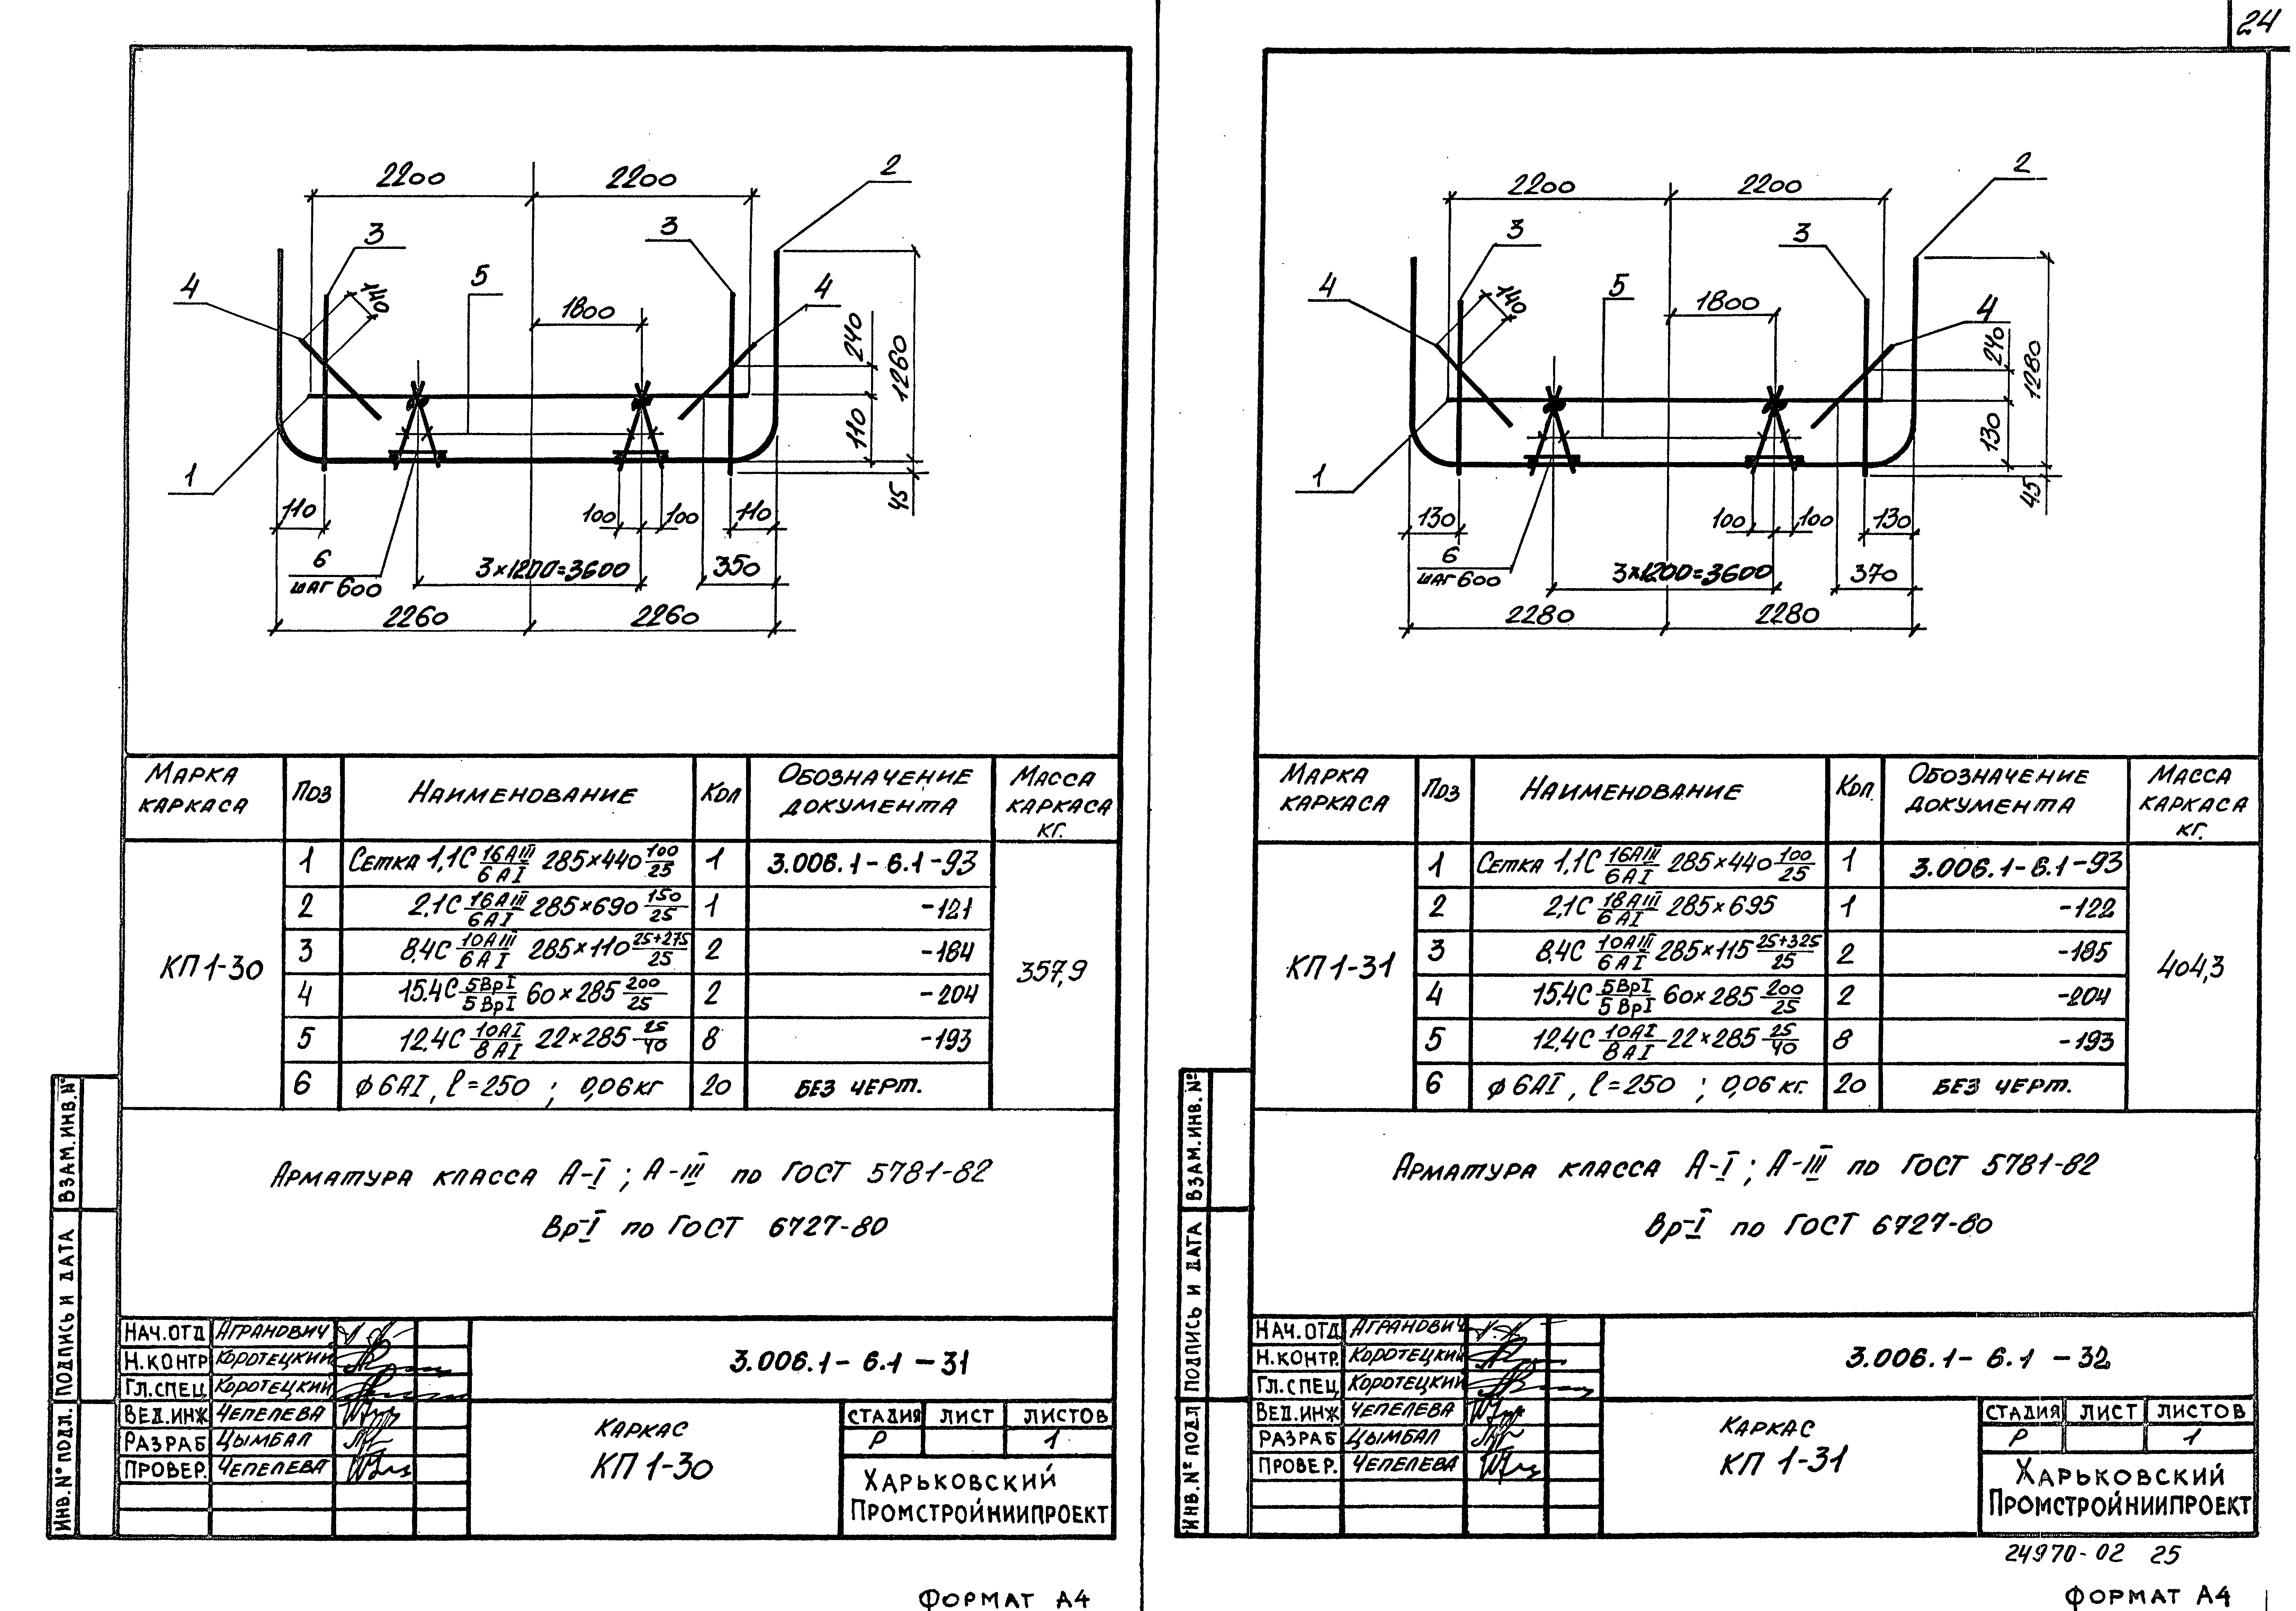 24
2200
2200
2
3
3
4
140
5
4
1800
240
1260
110
1
45
110
100
100
110
6
шаг 600
3×1200=3600
350
2260
2260
Марка каркаса
Поз
Наименование
Кол
Обозначение документа
Масса каркаса кг.
КП 1-30
357,9
1 Сетка 1,1С 16АIII/6АI 285×440 100/25 1 3.006.1-6.1-93
2 2,1С 16АIII/6АI 285×690 150/25 1 -121
3 8,4С 10АIII/6АI 285×110 25+275/25 2 -184
4 15.4С 5ВрI/5ВрI 60×285 200/25 2 -204
5 12.4С 10АI/8АI 22×285 25/40 8 -193
6 ϕ6АI, ℓ=250 ; 0,06кг 20 без черт.
Арматура класса А-I ; А-III по ГОСТ 5781-82
Вр-I по ГОСТ 6727-80
Взам.инв.№
Подпись и дата
Инв.№ подл.
Нач.отд Агранович
Н.контр Коротецкий
Гл.спец Коротецкий
Вед.инж Чепелева
Разраб Цымбал
Провер. Чепелева
3.006.1-6.1-31
Каркас
КП 1-30
Стадия Лист Листов
Р 1
Харьковский
Промстройниипроект
Формат А4
2200
2200
2
3
3
4
140
5
4
1800
240
1280
130
1
45
130
100
100
130
6
шаг 600
3×1200=3600
370
2280
2280
Марка каркаса
Поз
Наименование
Кол
Обозначение документа
Масса каркаса кг.
КП 1-31
404,3
1 Сетка 1,1С 16АIII/6АI 285×440 100/25 1 3.006.1-6.1-93
2 2,1С 18АIII/6АI 285×695 1 -122
3 8,4С 10АIII/6АI 285×115 25+325/25 2 -185
4 15,4С 5ВрI/5ВрI 60×285 200/25 2 -204
5 12,4С 10АI/8АI 22×285 25/40 8 -193
6 ϕ6АI, ℓ=250 ; 0,06кг. 20 без черт.
Арматура класса А-I ; А-III по ГОСТ 5781-82
Вр-I по ГОСТ 6727-80
Взам.инв.№
Подпись и дата
Инв.№ подл
Нач.отд Агранович
Н.контр. Коротецкий
Гл.спец. Коротецкий
Вед.инж Чепелева
Разраб Цымбал
Провер. Чепелева
3.006.1-6.1-32
Каркас
КП 1-31
Стадия Лист Листов
Р 1
Харьковский
Промстройниипроект
24970-02 25
Формат А4